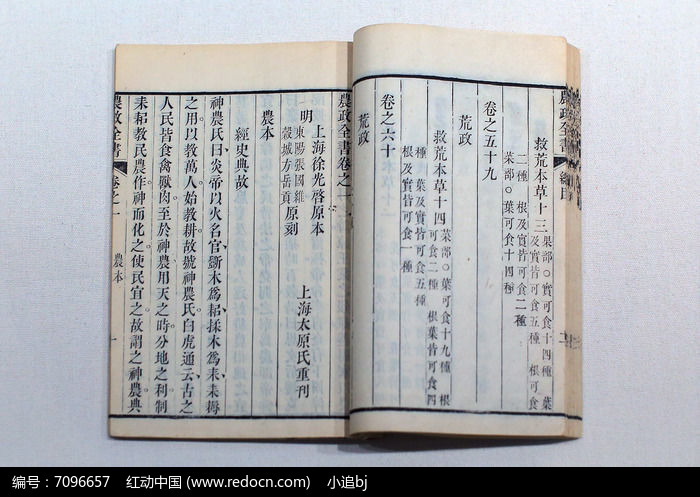 農政全書
總目
救荒本草十三 果部○實可食十四種 葉
及實皆可食五種 根可食
二種 根及實皆可食二種
菜部○葉可食十四種
卷之五十九
荒政
救荒本草十四 菜部○葉可食十九種 根
可食二種 根葉皆可食四
種 葉及實皆可食五種
根及實皆可食一種
卷之六十
荒政
農政全書卷之一
上海徐光啓原本
明 東陽張國維 穀城方岳貢 原刻
上海太原氏重刊
農本
經史典故
神農氏曰炎帝以火名官斲木爲耜揉木爲耒耒耨
之用以教萬人始教耕故號神農氏白虎通云古之
人民皆食禽獸肉至於神農用天之時分地之利制
耒耜教民農作神而化之使民宜之故謂之神農典
農政全書
卷之一
農本
一
编号：7096657 红动中国 (www.redocn.com) 小追bj